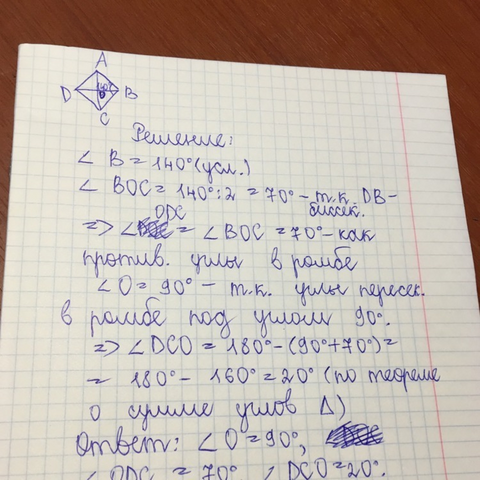 A
D 140° B
O
C
Решение:
∠ B = 140° (усл.)
∠ BOC = 140° : 2 = 70° – т.к. DB – биссек.
=> ∠ ODC = ∠ BOC = 70° – как
против. углы в ромбе
∠ O = 90° – т.к. углы пересек.
в ромбе под углом 90°.
=> ∠ DCO = 180° – (90° + 70°) =
= 180° – 160° = 20° (по теореме
о сумме углов Δ)
Ответ: ∠ O = 90°,
∠ ODC = 70°, ∠ DCO = 20°.